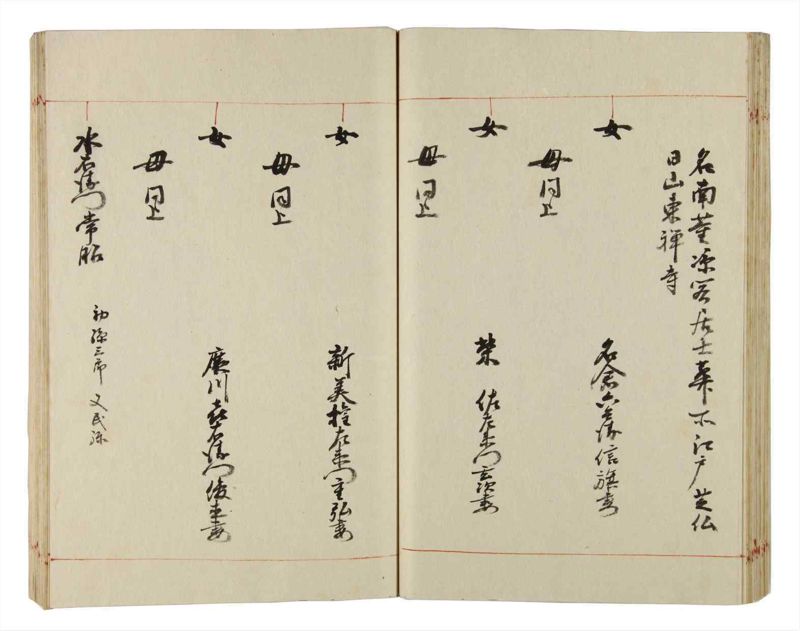 名南菫源窓居士葬于江戸芝仏
日山東禅寺
女
母同上
名倉六兵衛信旗妻
女
母同上
柴佐左衛門玄次妻
女
母同上
新美権左衛門重弘妻
女
母同上
廣川喜右衛門俊妻
水右衛門常昭
初源三郎 又民弥